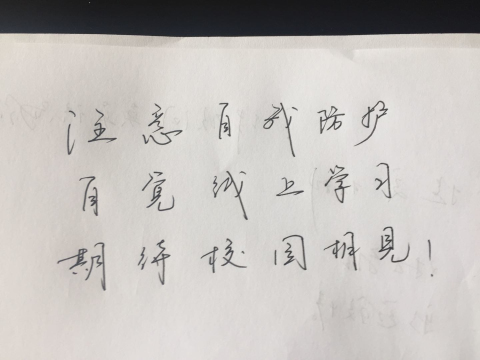 注意自我防护
自觉线上学习
期待校园相见!